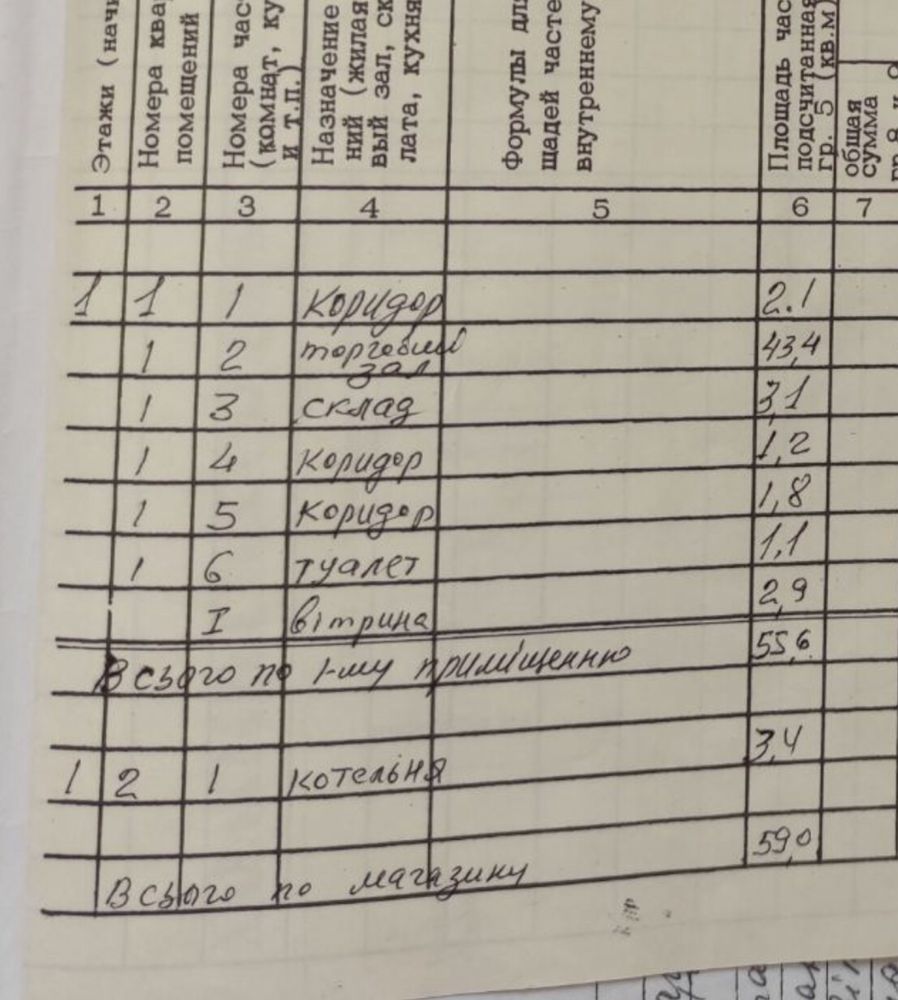 Этажи (начи
Номера квар
помещений
Номера час
(комнат, ку
и т.п.)
Назначение
ний (жилая
вый зал, ск
лата, кухня
Формулы дл
щадей часте
внутреннему
Площадь час
подсчитанная
гр. 5 (кв.м)
общая
сумма
1 2 3 4 5 6 7
1 1 1 коридор 2.1
1 2 торговий зал 43,4
1 3 склад 3,1
1 4 коридор 1,2
1 5 коридор 1,8
1 6 туалет 1,1
I вітрина 2,9
Всього по 1-му приміщенню 55,6
1 2 1 котельня 3,4
Всього по магазину 59,0